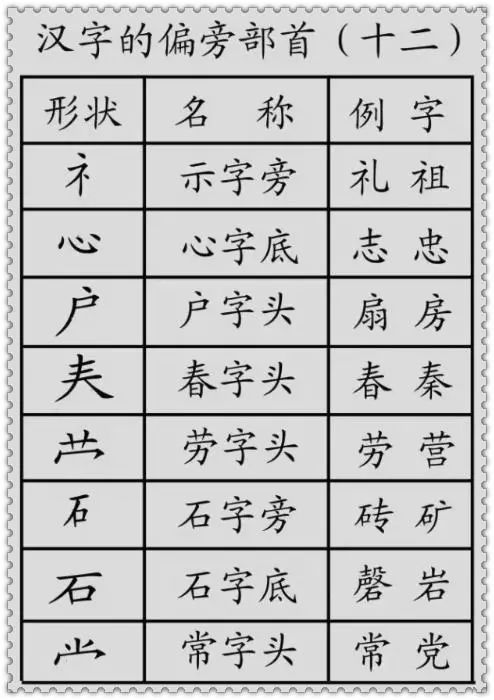 汉字的偏旁部首（十二）
形状 名 称 例 字
礻 示字旁 礼 祖
心 心字底 志 忠
户 户字头 扇 房
𡗗 春字头 春 秦
劳字头 劳 营
石 石字旁 砖 矿
石 石字底 磬 岩
⺌冖 常字头 常 党